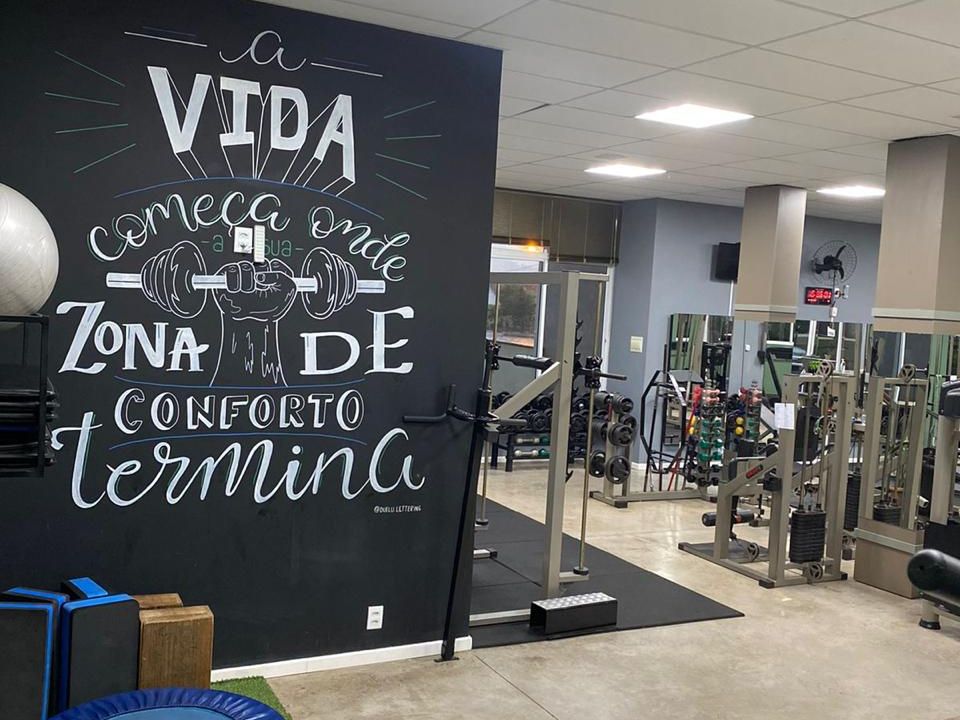 a
VIDA
começa onde
- a sua -
ZONA DE
CONFORTO
termina
@DUELLI.LETTERING